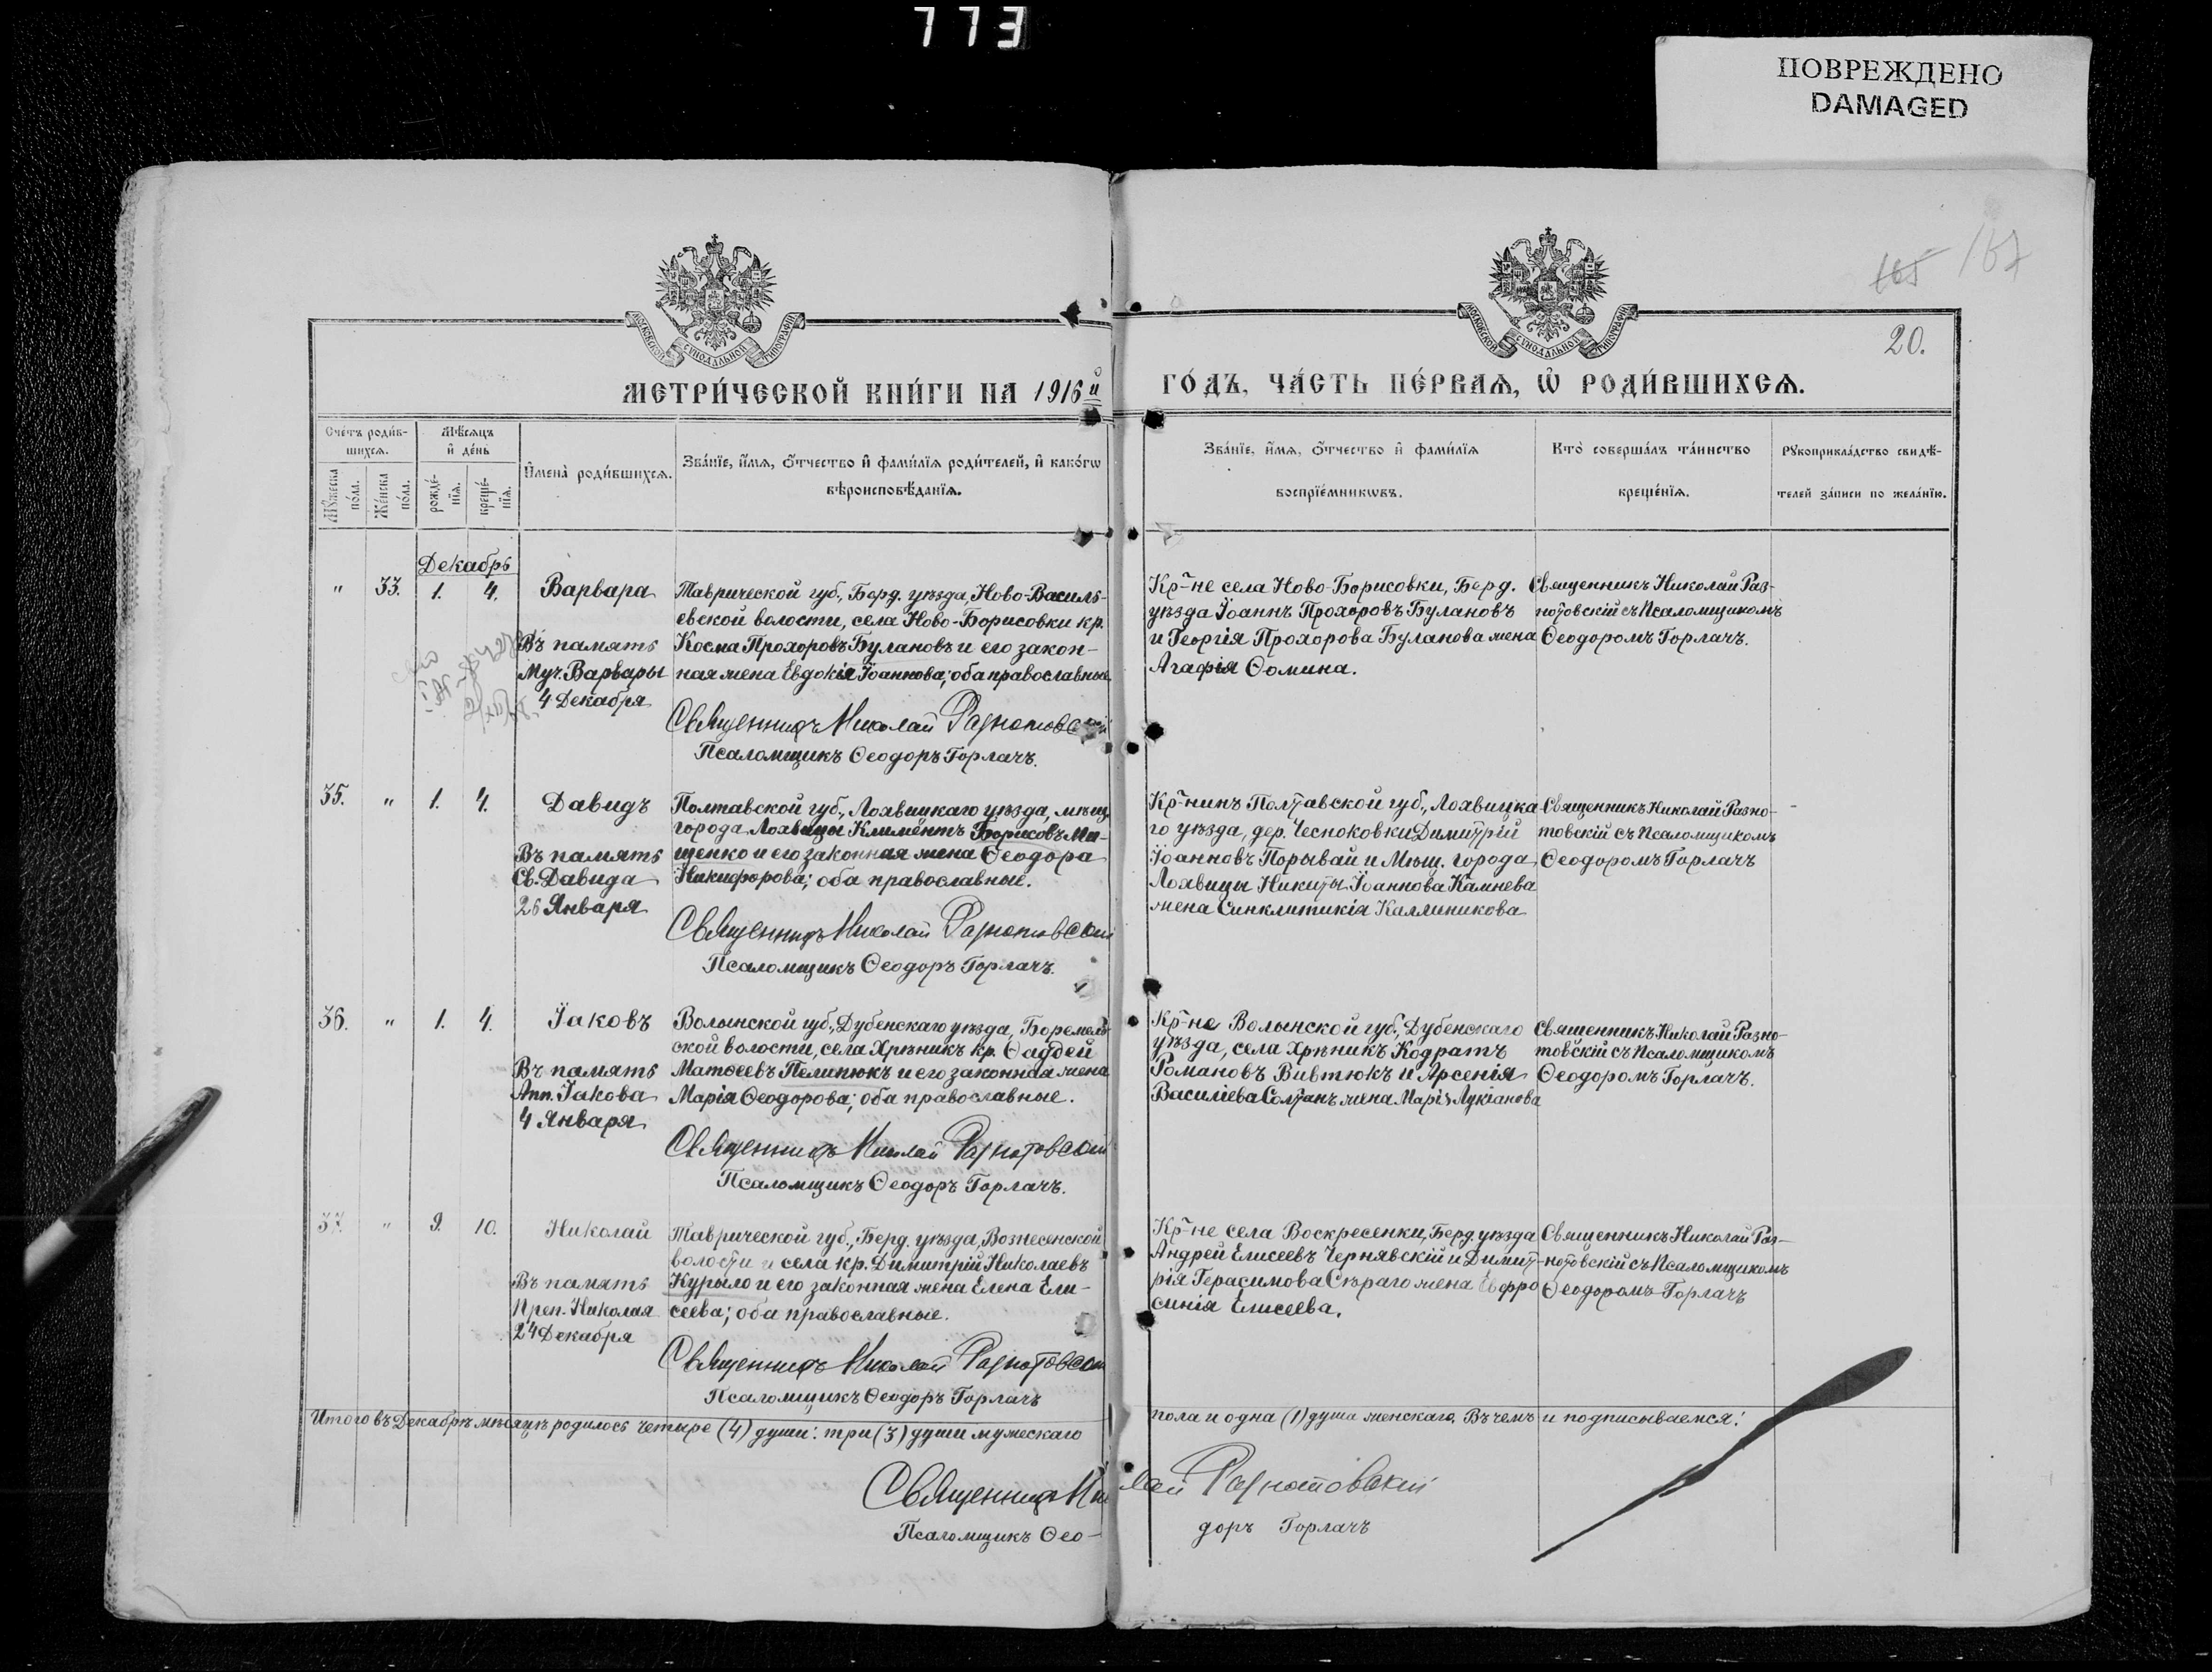 773
ПОВРЕЖДЕНО
DAMAGED
165 167
20.
МОСКОВСКОЙ СѴНОДАЛЬНОЙ ТИПОГРАФІИ
МОСКОВСКОЙ СѴНОДАЛЬНОЙ ТИПОГРАФІИ
МЕТРИ́ЧЕСКОЙ КНИ́ГИ НА 1916й
ГО́ДЪ, ЧА́СТЬ ПЕ́РВАѦ, Ѡ҆ РОДИ́ВШИХСѦ.
Сче́тъ роди́в-
шихсѧ.
Мꙋ́жеска по́ла.
Же́нска по́ла.
Мѣ́сѧцъ
и҆ де́нь
рожде́нїѧ.
креще́нїѧ.
И҆мена̀ роди́вшихсѧ.
Зва́нїе, и҆́мѧ, ѻ҆́тчество и҆ фами́лїѧ роди́телей, и҆ како́гѡ
вѣроисповѣ́данїѧ.
Зва́нїе, и҆́мѧ, ѻ҆́тчество и҆ фами́лїѧ
воспрїе́мникѡвъ.
Кто̀ соверша́лъ та́инство
креще́нїѧ.
Рꙋкоприкла́дство свидѣ́-
телей за́писи по жела́нїю.
Декабрь
" 33. 1. 4. Варвара
Въ память
Муч. Варвары
4 Декабря
Таврической губ., Берд. уѣзда, Ново-Василь-
евской волости, села Ново-Борисовки кр.
Косма Прохоровъ Булановъ и его закон-
ная жена Евдокія Іоаннова; оба православные.
Священникъ Николай Разнотовскій
Псаломщикъ Ѳеодоръ Горлачъ.
Кр-не села Ново-Борисовки, Берд.
уѣзда Іоаннъ Прохоровъ Булановъ
и Георгія Прохорова Буланова жена
Агафія Ѳомина.
Священникъ Николай Раз-
нотовскій съ Псаломщикомъ
Ѳеодоромъ Горлачъ.
35. " 1. 4. Давидъ
Въ память
Св. Давида
26 Января
Полтавской губ., Лохвицкаго уѣзда, мѣщ.
города Лохвицы Климентъ Борисовъ Ми-
щенко и его законная жена Ѳеодора
Никифорова; оба православные.
Священникъ Николай Разнотовскій
Псаломщикъ Ѳеодоръ Горлачъ.
Кр-нинъ Полтавской губ., Лохвицка
го уѣзда, дер. Чесноковки Димитрій
Іоанновъ Порывай и Мѣщ. города
Лохвицы Никиты Іоаннова Камнева
жена Синклитикія Каллиникова
Священникъ Николай Разно-
товскій съ Псаломщикомъ
Ѳеодоромъ Горлачъ
36. " 1. 4. Іаковъ
Въ память
Апп. Іакова
4 Января
Волынской губ., Дубенскаго уѣзда, Боремель-
ской волости, села Хрѣникъ кр. Ѳаддей
Матѳеевъ Пелипюкъ и его законная жена
Марія Ѳеодорова; оба православные.
Священникъ Николай Разнотовскій
Псаломщикъ Ѳеодоръ Горлачъ.
Кр-не Волынской губ., Дубенскаго
уѣзда, села Хрѣникъ Кодратъ
Романовъ Вивтюкъ и Арсенія
Василіева Солтанъ жена Марія Лукіанова
Священникъ Николай Разно-
товскій съ Псаломщикомъ
Ѳеодоромъ Горлачъ.
37. " 9. 10. Николай
Въ память
Преп. Николая
24 Декабря
Таврической губ., Берд. уѣзда, Вознесенской
волости и села кр. Димитрій Николаевъ
Курыло и его законная жена Елена Ели-
сеева; оба православные.
Священникъ Николай Разнотовскій
Псаломщикъ Ѳеодоръ Горлачъ
Кр-не села Воскресенки, Берд. уѣзда
Андрей Елисеевъ Чернявскій и Димит-
рія Герасимова Сѣраго жена Евфро
синія Елисеева.
Священникъ Николай Раз-
нотовскій съ Псаломщикомъ
Ѳеодоромъ Горлачъ
Итого въ Декабрѣ мѣсяцѣ родилось четыре (4) души: три (3) души мужескаго
пола и одна (1) душа женскаго. Въ чемъ и подписываемся:
Священникъ Николай Разнотовскій
Псаломщикъ Ѳео-
доръ Горлачъ